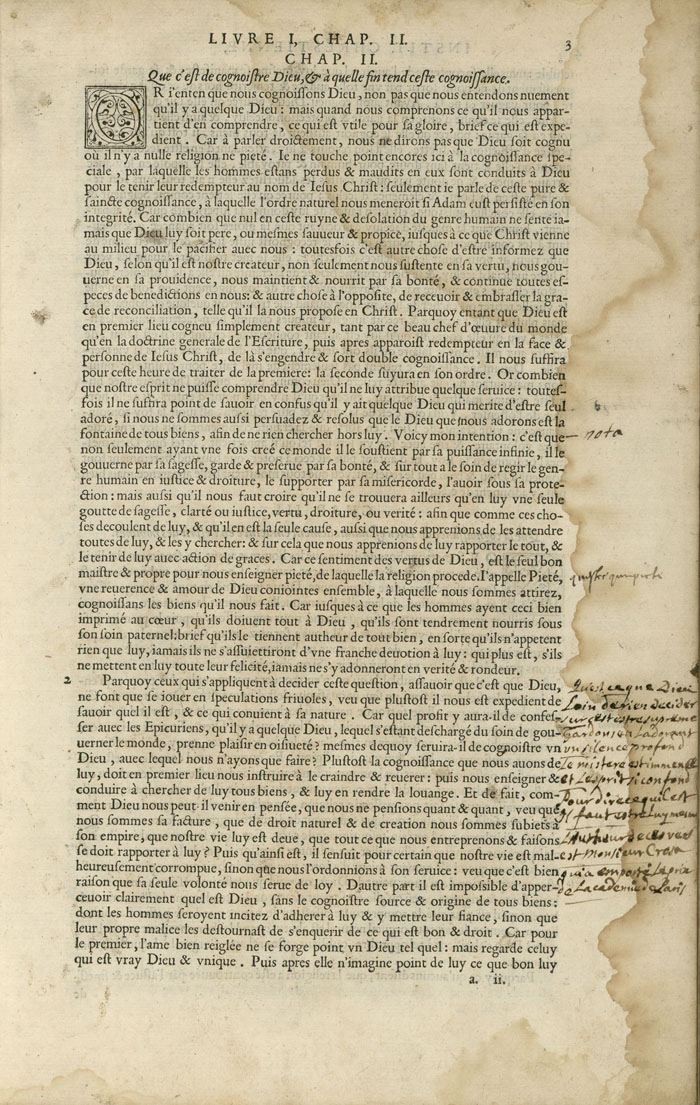 LIVRE I, CHAP. II.
3
CHAP. II.
Que c'est de cognoistre Dieu, & à quelle fin tend ceste cognoissance.
OR i'enten que nous cognoissons Dieu, non pas que nous entendons nuement
qu'il y a quelque Dieu : mais quand nous comprenons ce qu'il nous appar-
tient d'en comprendre, ce qui est vtile pour sa gloire, brief ce qui est expe-
dient. Car à parler droictement, nous ne dirons pas que Dieu soit cognu
où il n'y a nulle religion ne pieté. Ie ne touche point encores ici à la cognoissance spe-
ciale, par laquelle les hommes estans perdus & maudits en eux sont conduits à Dieu
pour le tenir leur redempteur au nom de Iesus Christ: seulement ie parle de ceste pure &
saincte cognoissance, à laquelle l'ordre naturel nous meneroit si Adam eust persisté en son
integrité. Car combien que nul en ceste ruyne & desolation du genre humain ne sente ia-
mais que Dieu luy soit pere, ou mesmes sauueur & propice, iusques à ce que Christ vienne
au milieu pour le pacifier auec nous : toutesfois c'est autre chose d'estre informez que
Dieu, selon qu'il est nostre createur, non seulement nous sustente en sa vertu, nous gou-
uerne en sa prouidence, nous maintient & nourrit par sa bonté, & continue toutes es-
peces de benedictions en nous: & autre chose à l'opposite, de receuoir & embrasser la gra-
ce de reconciliation, telle qu'il la nous propose en Christ. Parquoy entant que Dieu est
en premier lieu cogneu simplement createur, tant par ce beau chef d'œuure du monde
qu'en la doctrine generale de l'Escriture, puis apres apparoist redempteur en la face &
personne de Iesus Christ, de là s'engendre & sort double cognoissance. Il nous suffira
pour ceste heure de traiter de la premiere: la seconde suyura en son ordre. Or combien
que nostre esprit ne puisse comprendre Dieu qu'il ne luy attribue quelque seruice : toutes-
fois il ne suffira point de sauoir en confus qu'il y ait quelque Dieu qui merite d'estre seul
adoré, si nous ne sommes aussi persuadez & resolus que le Dieu que nous adorons est la
fontaine de tous biens, afin de ne rien chercher hors luy. Voicy mon intention : c'est que
nota
non seulement ayant vne fois creé ce monde il le soustient par sa puissance infinie, il le
gouuerne par sa sagesse, garde & preserue par sa bonté, & sur tout a le soin de regir le gen-
re humain en iustice & droiture, le supporter par sa misericorde, l'auoir sous sa prote-
ction : mais aussi qu'il nous faut croire qu'il ne se trouuera ailleurs qu'en luy vne seule
goutte de sagesse, clarté ou iustice, vertu, droiture, ou verité : afin que comme ces cho-
ses decoulent de luy, & qu'il en est la seule cause, aussi que nous apprenions de les attendre
toutes de luy, & les y chercher: & sur cela que nous apprenions de luy rapporter le tout, &
le tenir de luy auec action de graces. Car ce sentiment des vertus de Dieu, est le seul bon
maistre & propre pour nous enseigner pieté, de laquelle la religion procede. I'appelle Pieté,
vne reuerence & amour de Dieu coniointes ensemble, à laquelle nous sommes attirez,
cognoissans les biens qu'il nous fait. Car iusques à ce que les hommes ayent ceci bien
imprimé au cœur, qu'ils doiuent tout à Dieu, qu'ils sont tendrement nourris sous
son soin paternel: brief qu'ils le tiennent autheur de tout bien, en sorte qu'ils n'appetent
rien que luy, iamais ils ne s'assuiettiront d'vne franche deuotion à luy: qui plus est, s'ils
ne mettent en luy toute leur felicité, iamais ne s'y adonneront en verité & rondeur.
2 Parquoy ceux qui s'appliquent à decider ceste question, assauoir que c'est que Dieu,
ne font que se iouer en speculations friuoles, veu que plustost il nous est expedient de
sauoir quel il est, & ce qui conuient à sa nature. Car quel profit y aura-il de confes-
ser auec les Epicuriens, qu'il y a quelque Dieu, lequel s'estant deschargé du soin de gou-
uerner le monde, prenne plaisir en oisiueté? mesmes dequoy seruira-il de cognoistre vn
Dieu, auec lequel nous n'ayons que faire? Plustost la cognoissance que nous auons de
luy, doit en premier lieu nous instruire à le craindre & reuerer: puis nous enseigner &
conduire à chercher de luy tous biens, & luy en rendre la louange. Et de fait, com-
ment Dieu nous peut-il venir en pensée, que nous ne pensions quant & quant, veu que
nous sommes sa facture, que de droit naturel & de creation nous sommes subiets à
son empire, que nostre vie luy est deue, que tout ce que nous entreprenons & faisons
se doit rapporter à luy? Puis qu'ainsi est, il s'ensuit pour certain que nostre vie est mal-
heureusement corrompue, sinon que nous l'ordonnions à son seruice : veu que c'est bien
raison que sa seule volonté nous serue de loy. Dautre part il est impossible d'apper-
ceuoir clairement quel est Dieu, sans le cognoistre source & origine de tous biens:
dont les hommes seroyent incitez d'adherer à luy & y mettre leur fiance, sinon que
leur propre malice les destournast de s'enquerir de ce qui est bon & droit. Car pour
le premier, l'ame bien reiglée ne se forge point vn Dieu tel quel : mais regarde celuy
qui est vray Dieu & vnique. Puis apres elle n'imagine point de luy ce que bon luy
a. ii.
Qu'est ce que Dieu
Loin de rien decider
sur cest estre supreme
Gardons en L'adorant
un silence profond
Le mistere est immense
et L'esprit s'i confond
Pour dire ce quil est
il faut estre luy meme
L'autheur de ces vers
est Monsieur
qui a emporté Le prix
de L'academie de Paris